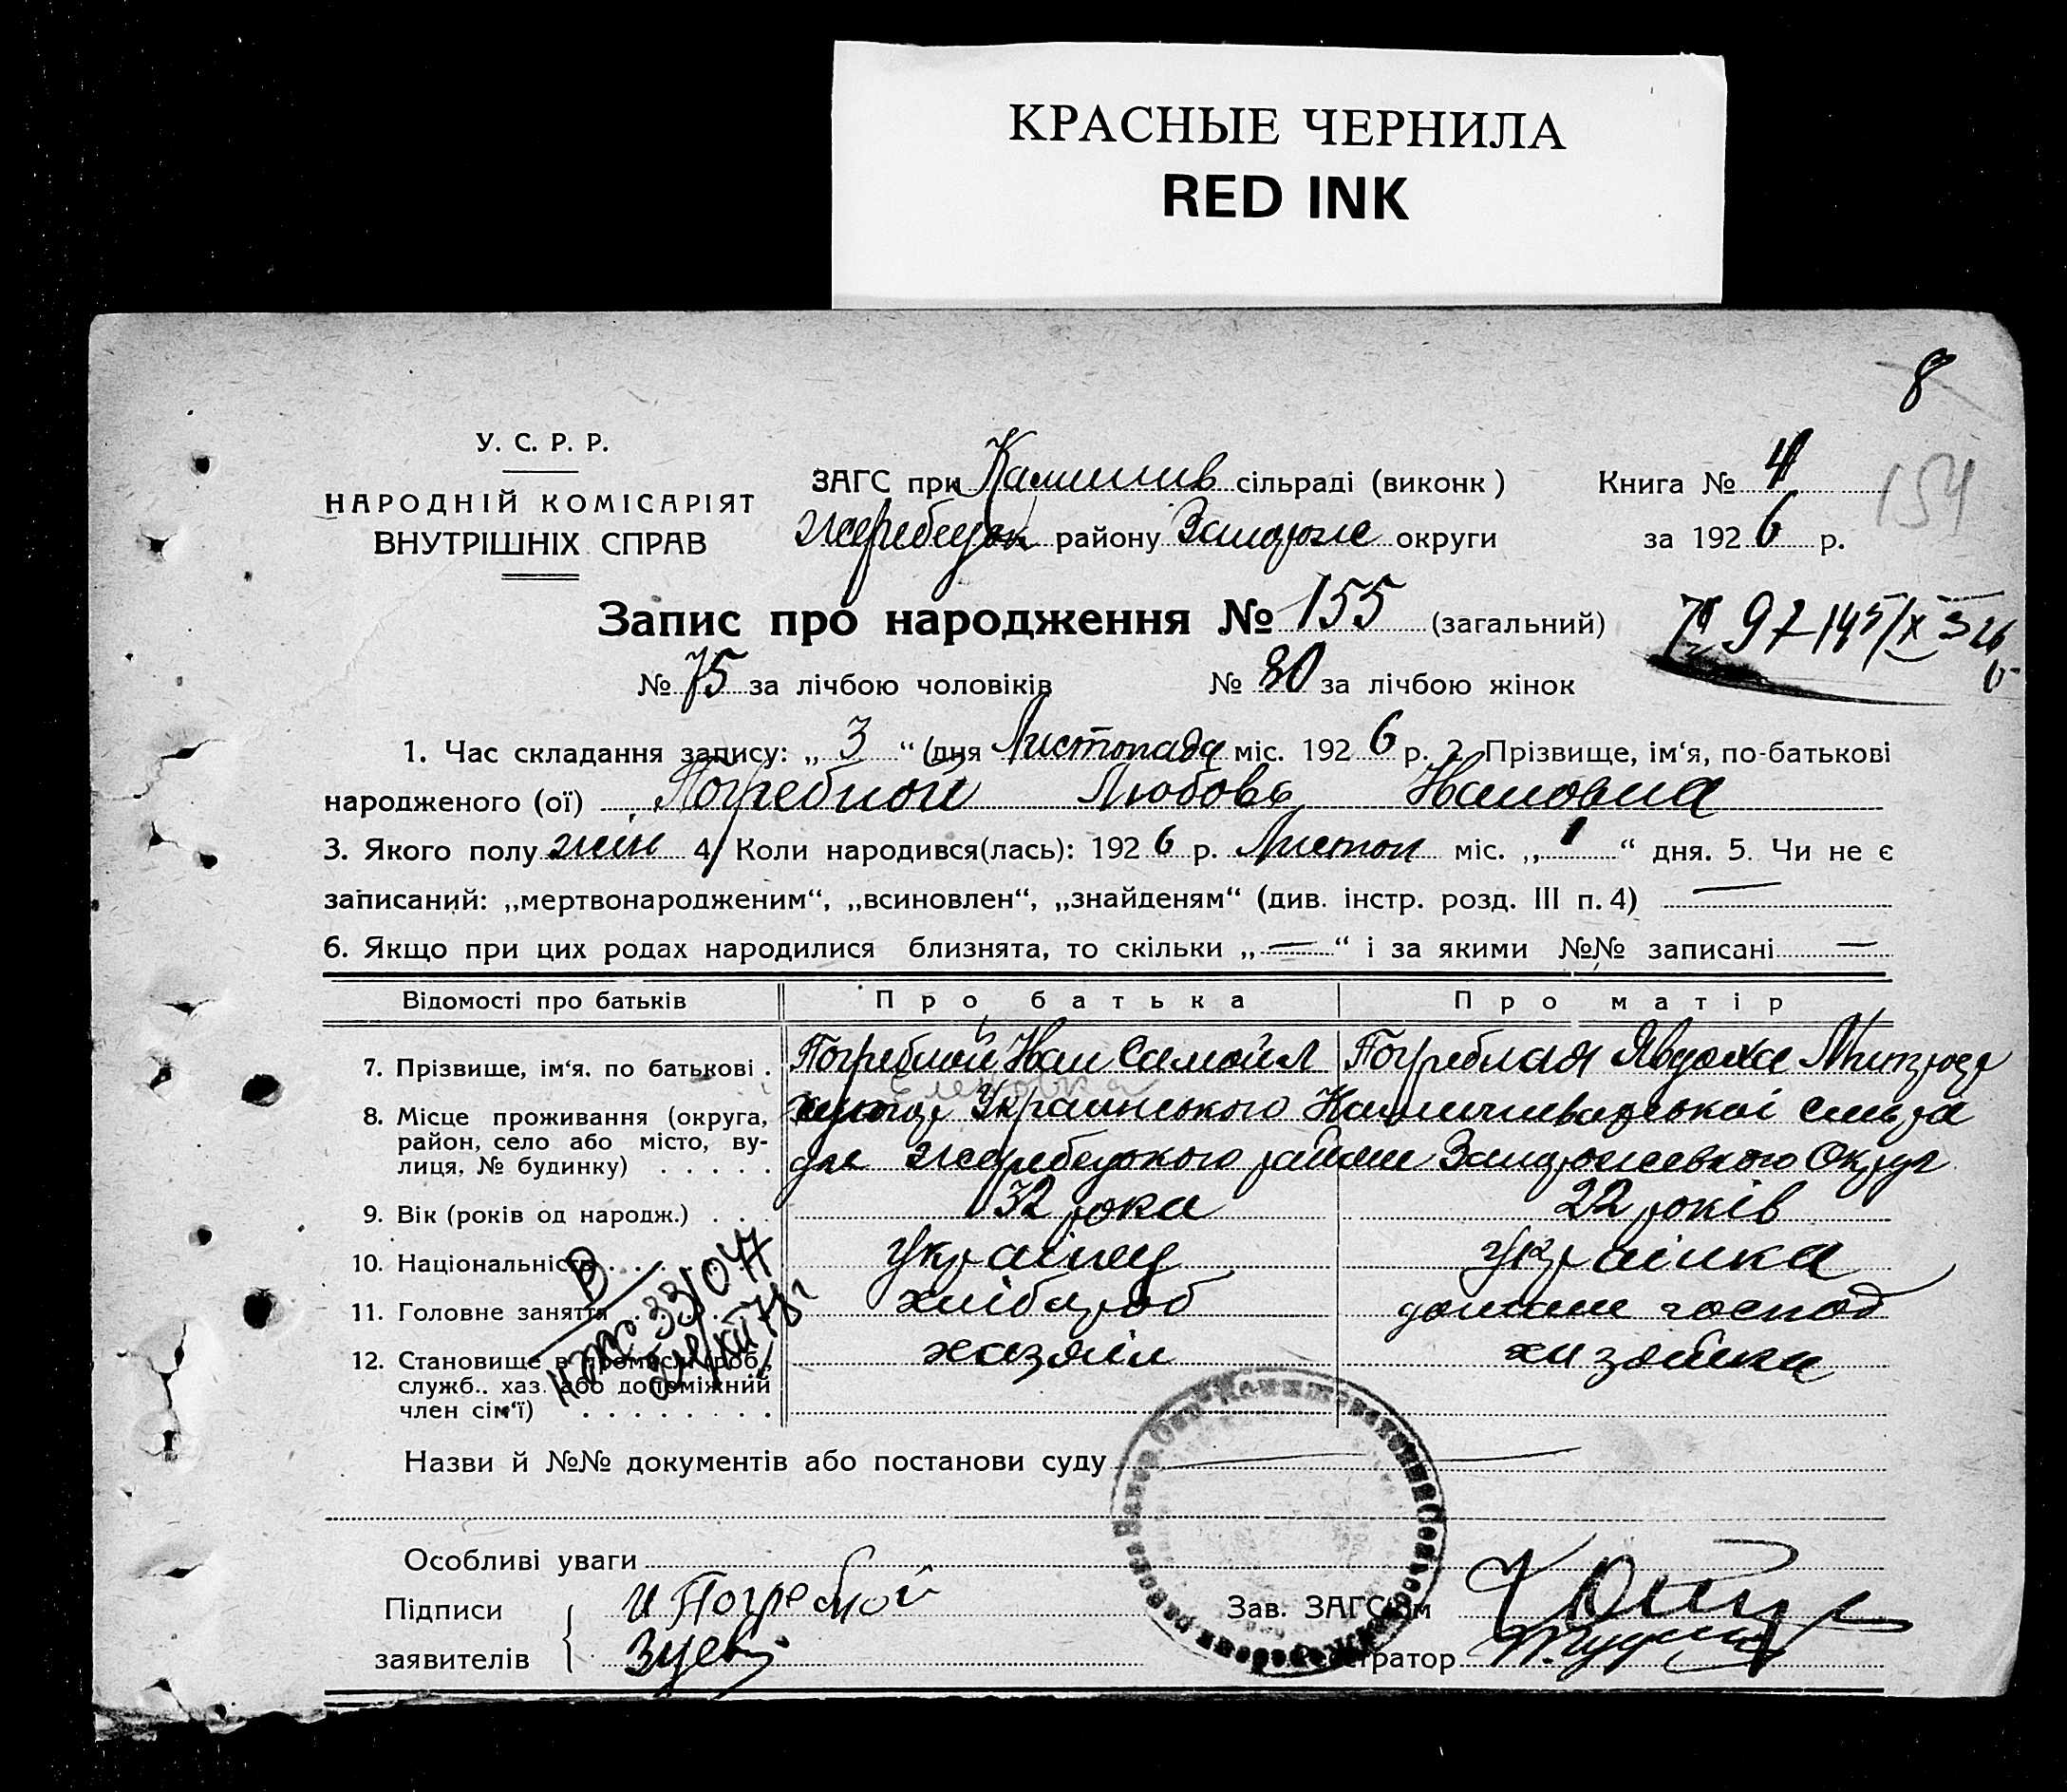 КРАСНЫЕ ЧЕРНИЛА
RED INK
8
У. С. Р. Р.
НАРОДНІЙ КОМІСАРІЯТ
ВНУТРІШНІХ СПРАВ
ЗАГС при Камишив сільраді (виконк)
Жеребецьк району Запоріже округи
Книга № 4
за 1926 р.
154
Запис про народження № 155 (загальний)
№ 75 за лічбою чоловіків № 80 за лічбою жінок
1. Час складання запису: „ 3 “ дня Листопада міс. 1926 р. 2. Прізвище, ім‘я, по-батькові
народженого (ої) Погребной Любовь Ивановна
3. Якого полу жін 4. Коли народився(лась): 1926 р. Листоп міс. „ 1 “ дня. 5. Чи не є
записаний: „мертвонародженим“, „всиновлен“, „знайденям“ (див. інстр. розд. III п. 4) —
6. Якщо при цих родах народилися близнята, то скільки „ — “ і за якими №№ записані —
Відомості про батьків Про батька Про матір
7. Прізвище, ім‘я. по батькові . Погребной Иван Самойл Погребная Явдоха
8. Місце проживання (округа,
район, село або місто, вулиця, № будинку) . . . . . Українського
Жеребецького района Округ
9. Вік (років од народж.) . . . 32 рока 22 років
10. Національність . . . українец українка
11. Головне заняття хлібороб домаше господ
12. Становище в промислі (роб., хазяїн хазяйка
служб.. хаз. або допоміжний
член сім‘ї) . . . . . . . .
Назви й №№ документів або постанови суду
Особливі уваги
Підписи И Погребной Зав. ЗАГС‘ом
заявителів Зуев Реєстратор